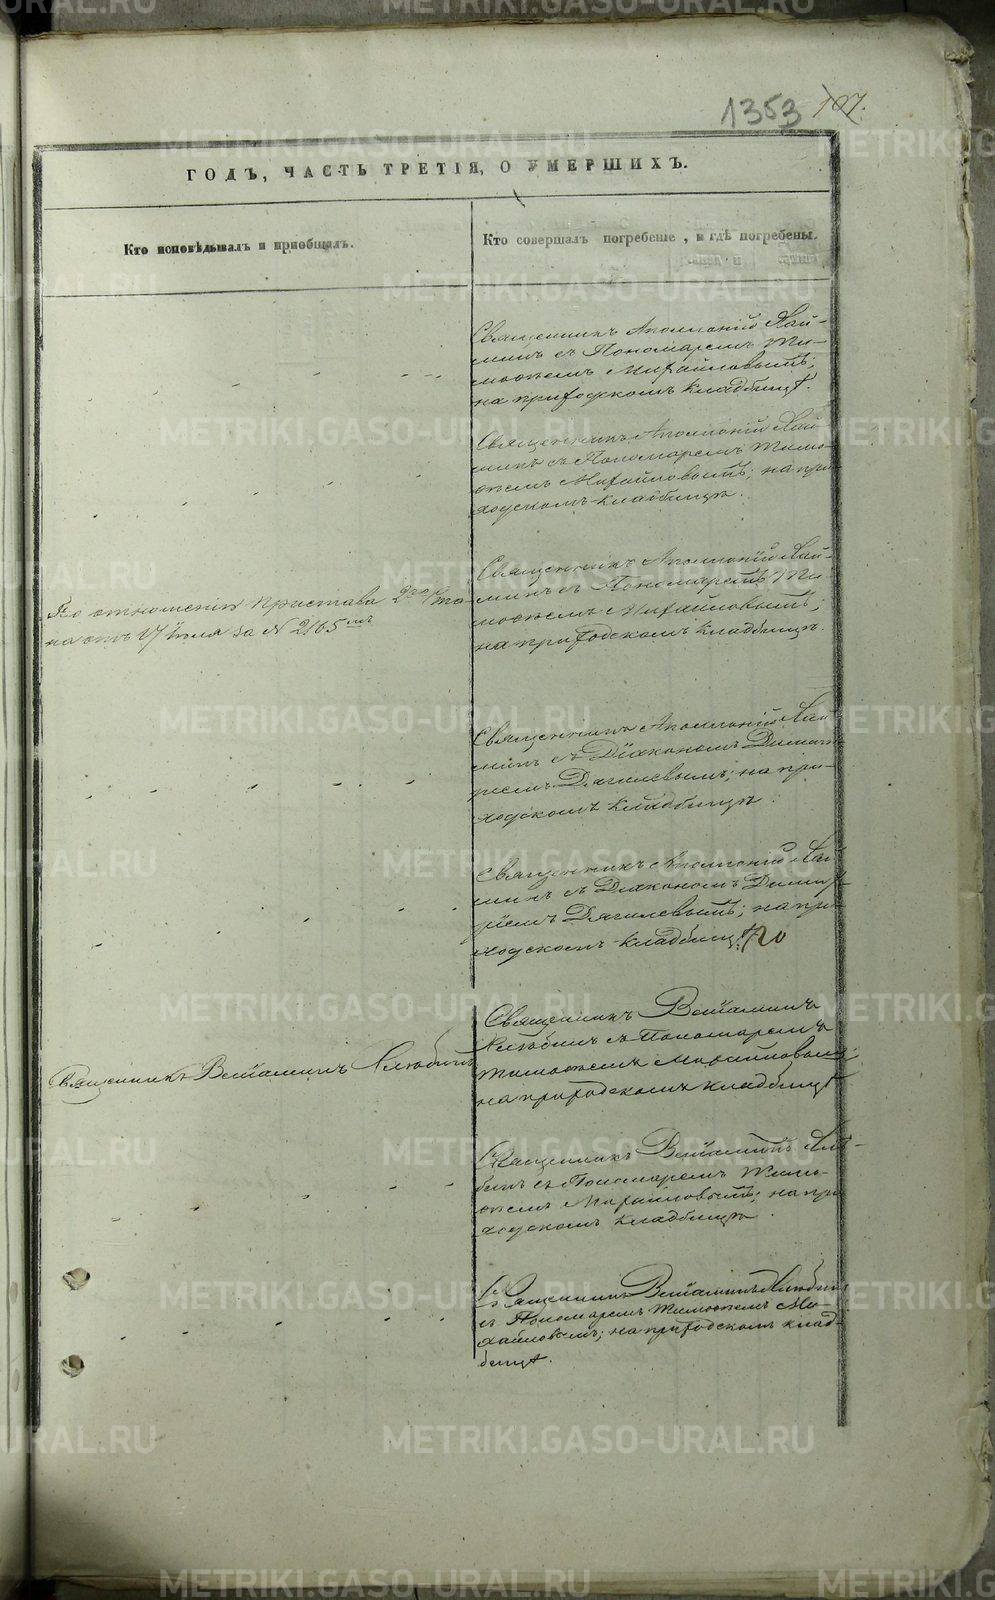 1353 107.
ГОДЪ, ЧАСТЬ ТРЕТІЯ, О УМЕРШИХЪ.
Кто исповѣдывалъ и пріобщалъ.
Кто совершалъ погребеніе, и гдѣ погребены.
Священникъ Аполлоній Лай-
минъ съ Пономаремъ Ти-
моѳеемъ Михайловымъ;
на приходскомъ кладбищѣ.
Священникъ Аполлоній Лай-
минъ съ Пономаремъ Тимо-
ѳеемъ Михайловымъ; на при-
ходскомъ кладбищѣ.
По отношенію Пристава 2го Ста-
на отъ 17 Іюля за N 2165мъ
Священникъ Аполлоній Лай-
минъ съ Пономаремъ Ти-
моѳеемъ Михайловымъ;
на приходскомъ кладбищѣ.
Священникъ Аполлоній Лай-
минъ съ Діакономъ Димит-
ріемъ Дягилевымъ; на при-
ходскомъ кладбищѣ.
Священникъ Аполлоній Лай-
минъ съ Діакономъ Димит-
ріемъ Дягилевымъ; на при-
ходскомъ кладбищѣ.
Священникъ Веніаминъ
съ Пономаремъ
Тимоѳеемъ Михайловымъ;
на приходскомъ кладбищѣ
Священникъ Веніаминъ
Священникъ Веніаминъ
съ Пономаремъ Тимо-
ѳеемъ Михайловымъ; на при-
ходскомъ кладбищѣ.
Священникъ Веніаминъ
съ Пономаремъ Тимоѳеемъ Ми-
хайловымъ; на приходскомъ клад-
бищѣ.
METRIKI.GASO-URAL.RU